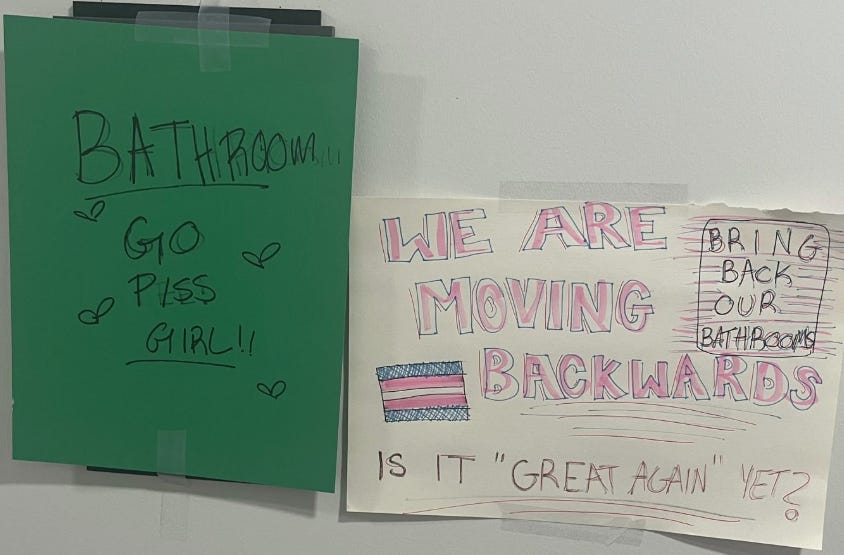 BATHROOM...
GO
PISS
GIRL!!
WE ARE
MOVING
BACKWARDS
BRING
BACK
OUR
BATHROOMS
IS IT "GREAT AGAIN" YET?